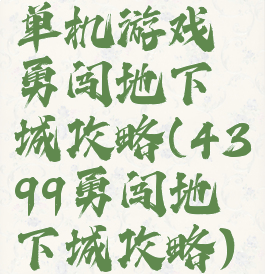 单机游戏
勇闯地下
城攻略(43
99勇闯地
下城攻略)